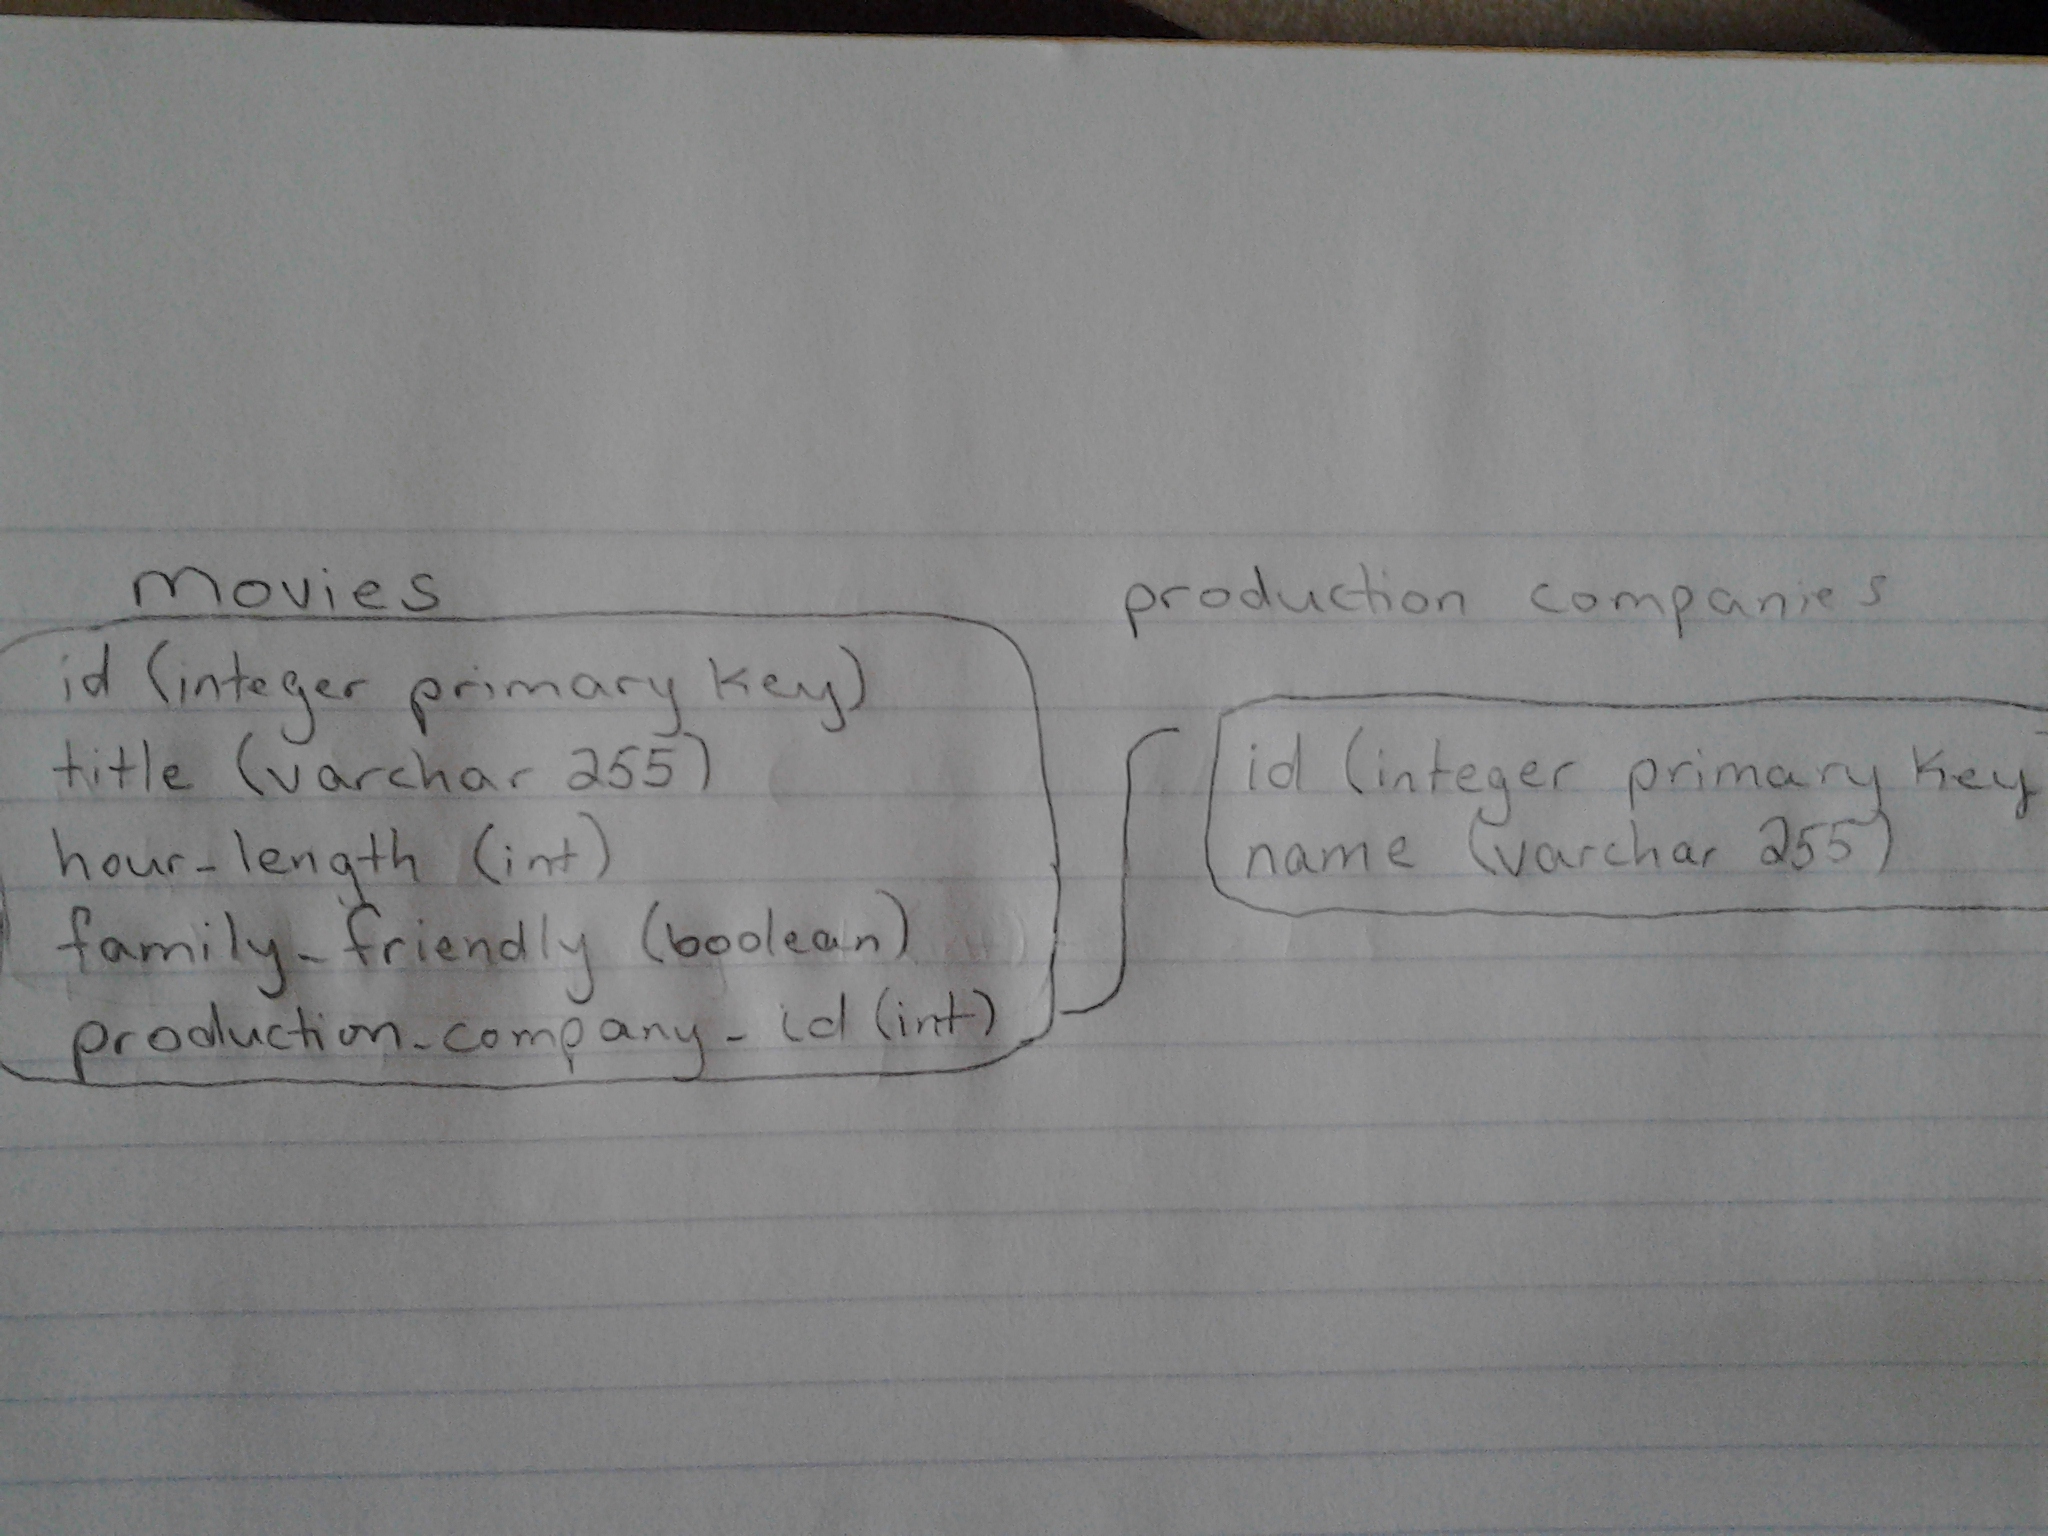 movies
id (integer primary key)
title (varchar 255)
hour_length (int)
family_friendly (boolean)
production_company_id (int)
production companies
id (integer primary key
name (varchar 255)